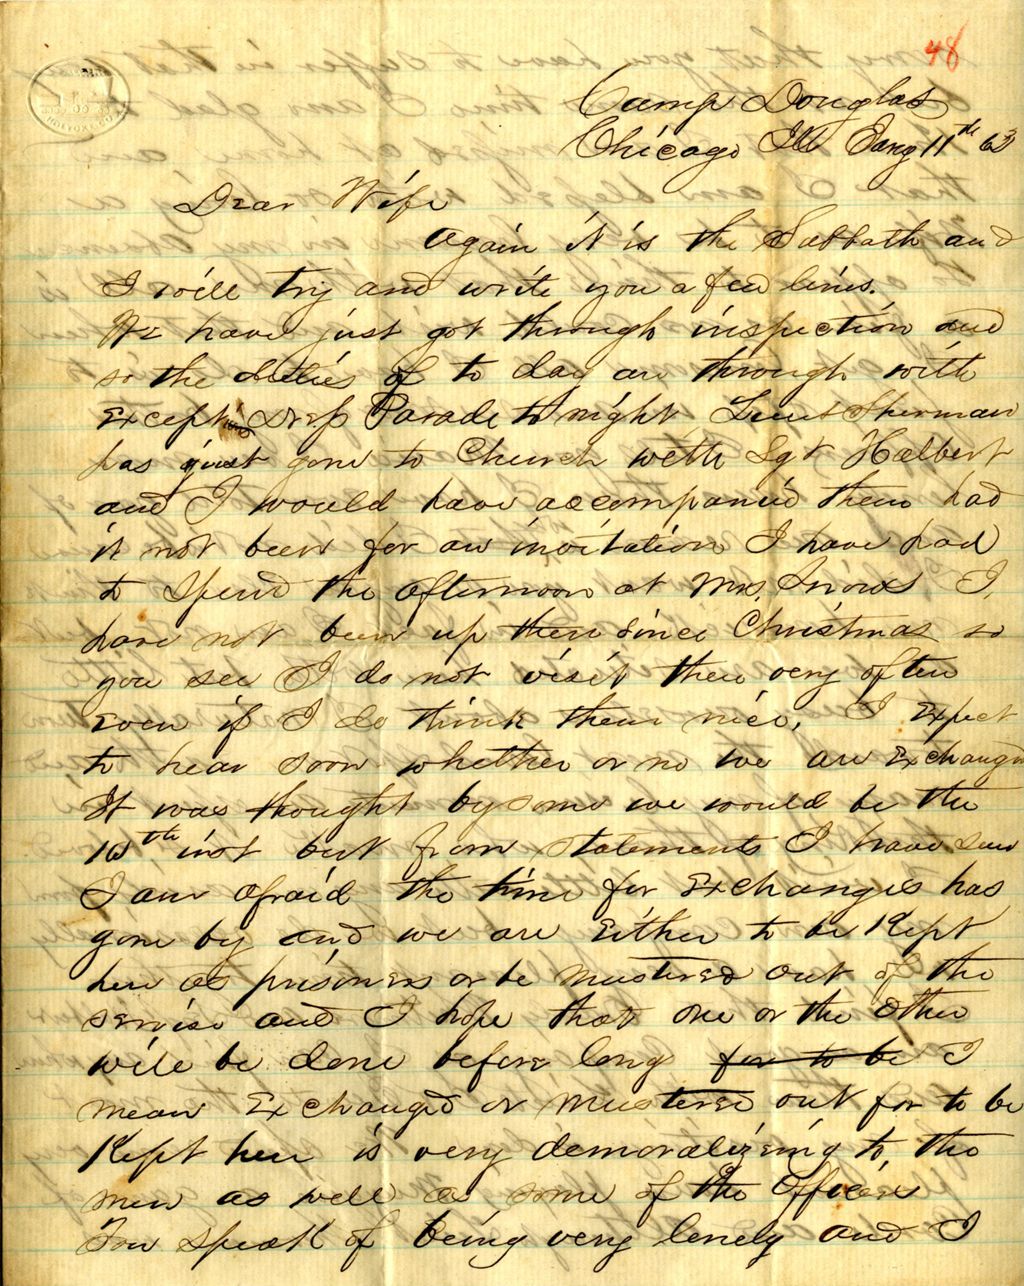 48
Camp Douglas
Chicago Ill Jany 11th 63
Dear Wife
Again it is the Sabbath and
I will try and write you a few lines.
We have just got through inspection and
so the duties of to day are through with
Except Dress Parade to night Lieut Sherman
has just gone to Church with Sgt Halbert
and I would have accompanied them had
it not been for an invitation I have had
to spend the afternoon at Mrs. I
have not been up there since Christmas so
you see I do not visit there very often
Even if I do think them nice, I Expect
to hear soon whether or no we are Exchanged
It was thought by some we would be the
10th inst but from statements I have seen
I am afraid the time for Exchanges has
gone by and we are Either to be Kept
here as prisoners or be mustered out of the
servise and I hope that one or the other
will be done before long for to be I
mean Exchanged or mustered out for to be
Kept here is very demoralizeing to the
men as well as some of the Officers
You speak of being very lonely and I